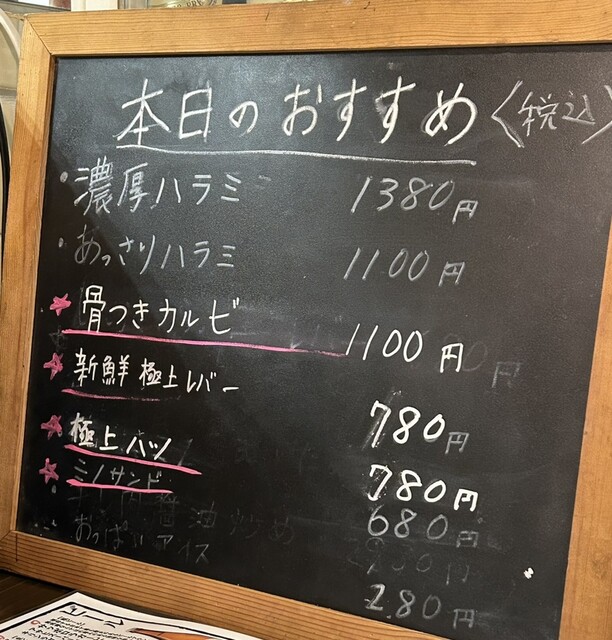 本日のおすすめ〈税込〉
・濃厚ハラミ 1380円
・あっさりハラミ 1100円
★骨つきカルビ 1100円
★新鮮極上レバー 780円
★極上ハツ 780円
★ミノサンド 680円
醤油炒め
おっぱいアイス 280円